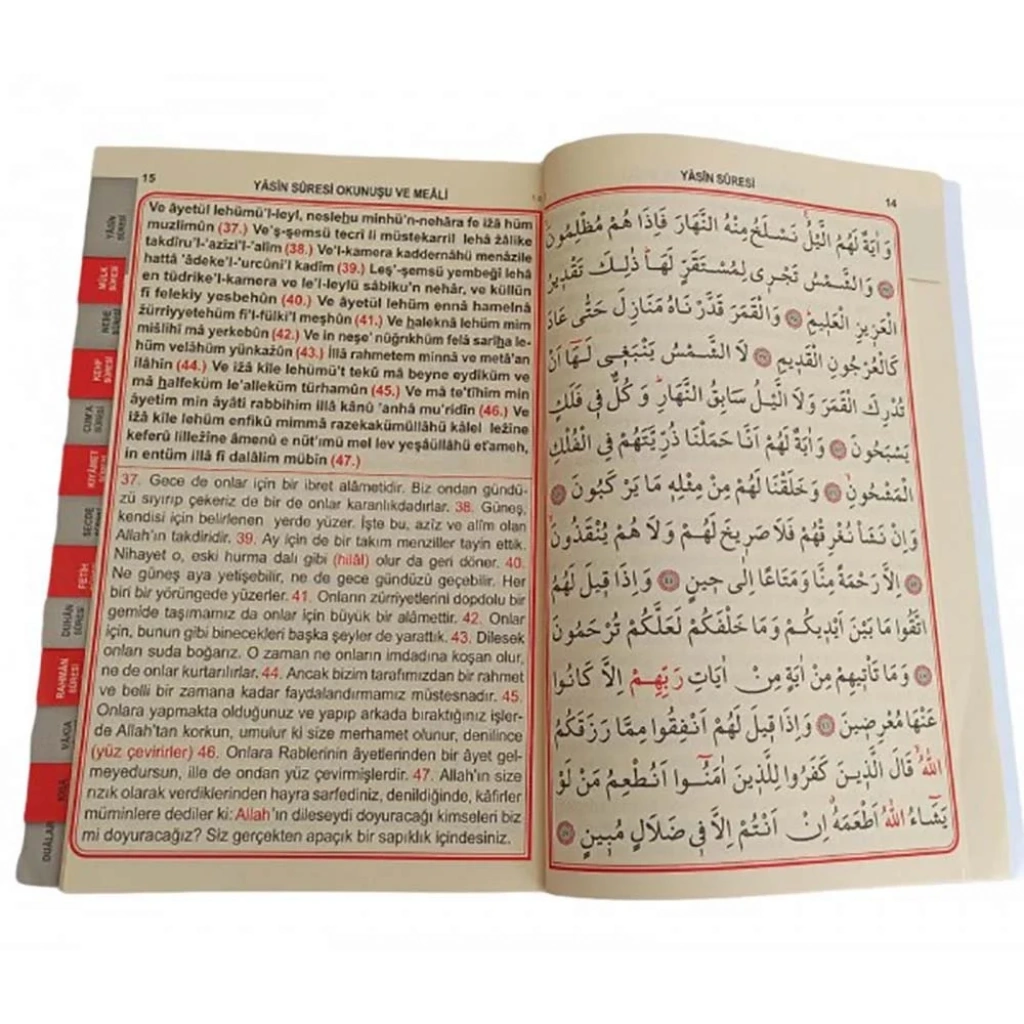 YÂSÎN SÛRESİ
14
وَاٰيَةٌ لَهُمُ الَّيْلُ نَسْلَخُ مِنْهُ النَّهَارَ فَاِذَا هُمْ مُظْلِمُونَ
وَالشَّمْسُ تَجْرٖى لِمُسْتَقَرٍّ لَهَا ذٰلِكَ تَقْدٖيرُ
الْعَزٖيزِ الْعَلٖيمِ وَالْقَمَرَ قَدَّرْنَاهُ مَنَازِلَ حَتّٰى عَادَ
كَالْعُرْجُونِ الْقَدٖيمِ لَا الشَّمْسُ يَنْبَغٖى لَهَٓا اَنْ
تُدْرِكَ الْقَمَرَ وَلَا الَّيْلُ سَابِقُ النَّهَارِ وَكُلٌّ فٖى فَلَكٍ
يَسْبَحُونَ وَاٰيَةٌ لَهُمْ اَنَّا حَمَلْنَا ذُرِّيَّتَهُمْ فِى الْفُلْكِ
الْمَشْحُونِ وَخَلَقْنَا لَهُمْ مِنْ مِثْلِهٖ مَا يَرْكَبُونَ
وَاِنْ نَشَأْ نُغْرِقْهُمْ فَلَا صَرٖيخَ لَهُمْ وَلَا هُمْ يُنْقَذُونَ
اِلَّا رَحْمَةً مِنَّا وَمَتَاعًا اِلٰى حٖينٍ وَاِذَا قٖيلَ لَهُمُ
اتَّقُوا مَا بَيْنَ اَيْدٖيكُمْ وَمَا خَلْفَكُمْ لَعَلَّكُمْ تُرْحَمُونَ
وَمَا تَأْتٖيهِمْ مِنْ اٰيَةٍ مِنْ اٰيَاتِ رَبِّهِمْ اِلَّا كَانُوا
عَنْهَا مُعْرِضٖينَ وَاِذَا قٖيلَ لَهُمْ اَنْفِقُوا مِمَّا رَزَقَكُمُ
اللّٰهُ قَالَ الَّذٖينَ كَفَرُوا لِلَّذٖينَ اٰمَنُٓوا اَنُطْعِمُ مَنْ لَوْ
يَشَٓاءُ اللّٰهُ اَطْعَمَهُ اِنْ اَنْتُمْ اِلَّا فٖى ضَلَالٍ مُبٖينٍ
15
YÂSÎN SÛRESİ OKUNUŞU VE MEÂLİ
Ve âyetül lehümü'l-leyl, neslehu minhü'n-nehâra fe iżâ hüm
muzlimûn (37.) Ve'ş-şemsü tecrî li müstekarril lehâ żâlike
takdîru'l-'azîzi'l-'alîm (38.) Ve'l-kamera kaddernâhü menâzile
hattâ 'âdeke'l-'urcûni'l kadîm (39.) Leş'-şemsü yembeğî lehâ
en tüdrike'l-kamera ve le'l-leylü sâbiku'n nehâr, ve küllün
fî felekiy yesbehûn (40.) Ve âyetül lehüm ennâ hamelnâ
żürriyyetehüm fi'l-fülki'l meşhûn (41.) Ve haleknâ lehüm mim
mišlihî mâ yerkebûn (42.) Ve in neşe' nüğrıkhüm felâ sarîha le-
hüm velâhüm yünkażûn (43.) İllâ rahmetem minnâ ve metâ'an
ilâhîn (44.) Ve iżâ kîle lehümü't tekû mâ beyne eydîküm ve
mâ halfeküm le'alleküm türhamûn (45.) Ve mâ te'tîhim min
âyetim min âyâti rabbihim illâ kânû 'anhâ mu'ridîn (46.) Ve
iżâ kîle lehüm enfikû mimmâ razekakümüllâhü kâlel ležîne
keferû lilležîne âmenû e nüt'ımü mel lev yeşâüllâhü et'ameh,
in entüm illâ fî dalâlim mübîn (47.)
37. Gece de onlar için bir ibret alâmetidir. Biz ondan gündü-
zü sıyırıp çekeriz de bir de onlar karanlıkdadırlar. 38. Güneş,
kendisi için belirlenen yerde yüzer. İşte bu, azîz ve alîm olan
Allah'ın takdiridir. 39. Ay için de bir takım menziller tayin ettik.
Nihayet o, eski hurma dalı gibi (hilâl) olur da geri döner. 40.
Ne güneş aya yetişebilir, ne de gece gündüzü geçebilir. Her
biri bir yörüngede yüzerler. 41. Onların zürriyetlerini dopdolu bir
gemide taşımamız da onlar için büyük bir alâmettir. 42. Onlar
için, bunun gibi binecekleri başka şeyler de yarattık. 43. Dilesek
onları suda boğarız. O zaman ne onların imdadına koşan olur,
ne de onlar kurtarılırlar. 44. Ancak bizim tarafımızdan bir rahmet
ve belli bir zamana kadar faydalandırmamız müstesnadır. 45.
Onlara yapmakta olduğunuz ve yapıp arkada bıraktığınız işler-
de Allah'tan korkun, umulur ki size merhamet olunur, denilince
(yüz çevirirler) 46. Onlara Rablerinin âyetlerinden bir âyet gel-
meyedursun, ille de ondan yüz çevirmişlerdir. 47. Allah'ın size
rızık olarak verdiklerinden hayra sarfediniz, denildiğinde, kâfirler
müminlere dediler ki: Allah'ın dileseydi doyuracağı kimseleri biz
mi doyuracağız? Siz gerçekten apaçık bir sapıklık içindesiniz.
YÂSÎN
SÛRESİ
MÜLK
SÛRESİ
NEBE
SÛRESİ
KEHF
SÛRESİ
CUM'A
SÛRESİ
KIYÂMET
SECDE
FETİH
DUHÂN
SÛRESİ
RAHMÂN
SÛRESİ
VÂKIA
DUÂLAR